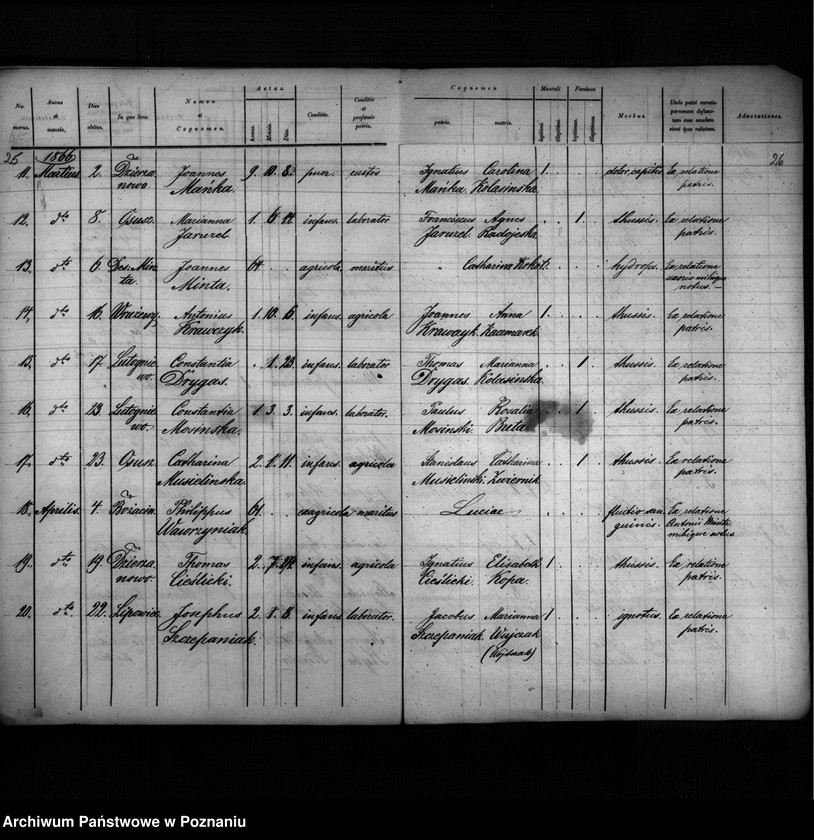 Nu merus. Annus et mensis. Dies obitus. In quo loco. Nomen et Cognomen. Aetas. Annus. Mensis. Dies. Conditio. Conditio et professio patris. Cognomen patris. matris. Masculi legitimi. illegitimi. Feminae legitimae. illegitimae. Morbus. Unde patet curato personam defunctam esse eandem sicut ipse relatum. Adnotationes.
25 1866 26
11. Martius 2. Dzierza Joannes 9. 10. 8. puer. custos Ignatius Carolina 1 debr. capitis Ex relatione
nowo. Mańka. Mańka. Kolasinska. patris.
12. dto 8. Osusz. Marianna 1. 6. 14. infans. laborator Franciscus Agnes 1 thussis. Ex relatione
Jaruzel. Jaruzel Radojeska. patris.
13. dto 6. Des. Min Joannes 64. agricola. maritus Catharina Kokot. hydrops. Ex relatione
ta. Minta. uxoris mihique
notus.
14. dto 16. Wruzewy. Antonius 1. 10. 6. infans. agricola Joannes Anna 1 thussis. Ex relatione
Krawczyk. Krawczyk. Kaczmarek. patris.
15. dto 17. Lutognie Constantia 1. 23. infans. laborator Thomas Marianna 1 thussis. Ex relatione
wo. Drygas. Drygas. Kolasinska. patris.
16. dto 23. Lutognie Constantia 1. 3. 3. infans. laborator. Paulus Rosalia 1 thussis. Ex relatione
wo. Mosinska. Mosinski. Breta patris.
17. dto 23. Osusz. Catharina 2. 1. 11. infans. agricola Stanislaus Catharina 1 thussis. Ex relatione
Musielinska. Musielinski. Zwiernik patris.
18. Aprilis. 4. Bożacin. Philippus 61. exagricola maritus Luciae fluctio san Ex relatione
Wawrzyniak. guinis. Antonii
mihique notus.
19. dto 19. Dzierza Thomas 2. 7. infans. agricola Ignatius Elisabeth 1 thussis. Ex relatione
nowo. Cieślicki. Cieślicki. Kopa. patris.
20. dto 22. Lipowiec. Josephus 2. 1. 8. infans laborator. Jacobus Marianna 1 ignotus. Ex relatione
Szczepaniak. Szczepaniak. Wujczak patris.
(Wójtczak)
Archiwum Państwowe w Poznaniu